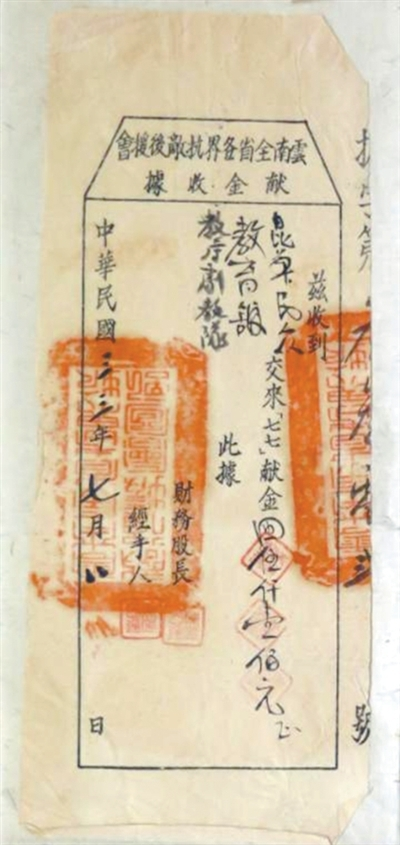 字第
號
雲南全省各界抗敵後援會
献金收據
茲收到
昆華民众
教育館
教厅剧教隊
交來「七七」献金四伍仟壹佰元正
此據
財務股長
經手人
中華民國三三年七月八日